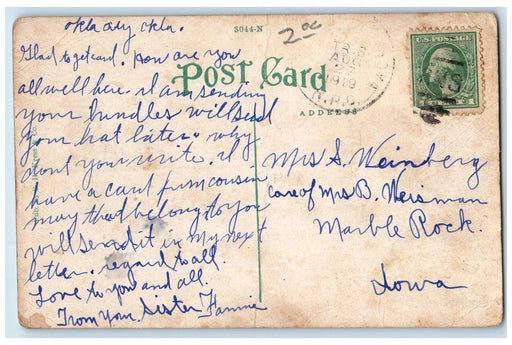 okla city okla.
Glad to get card. How are you
all well here. I am sending
your bundles will send
your hat later. why
dont you write. I
have a card from cousin
may that belong to you
will send it in my next
letter. regard to all.
Love to you and all.
From your Sister Fannie
3044-N
20c
Post Card
ADDRESS
AUG
1919
R.P.O.
U.S. POSTAGE
Mrs S. Weinberg
care of Mrs B. Weisman
Marble Rock.
Iowa